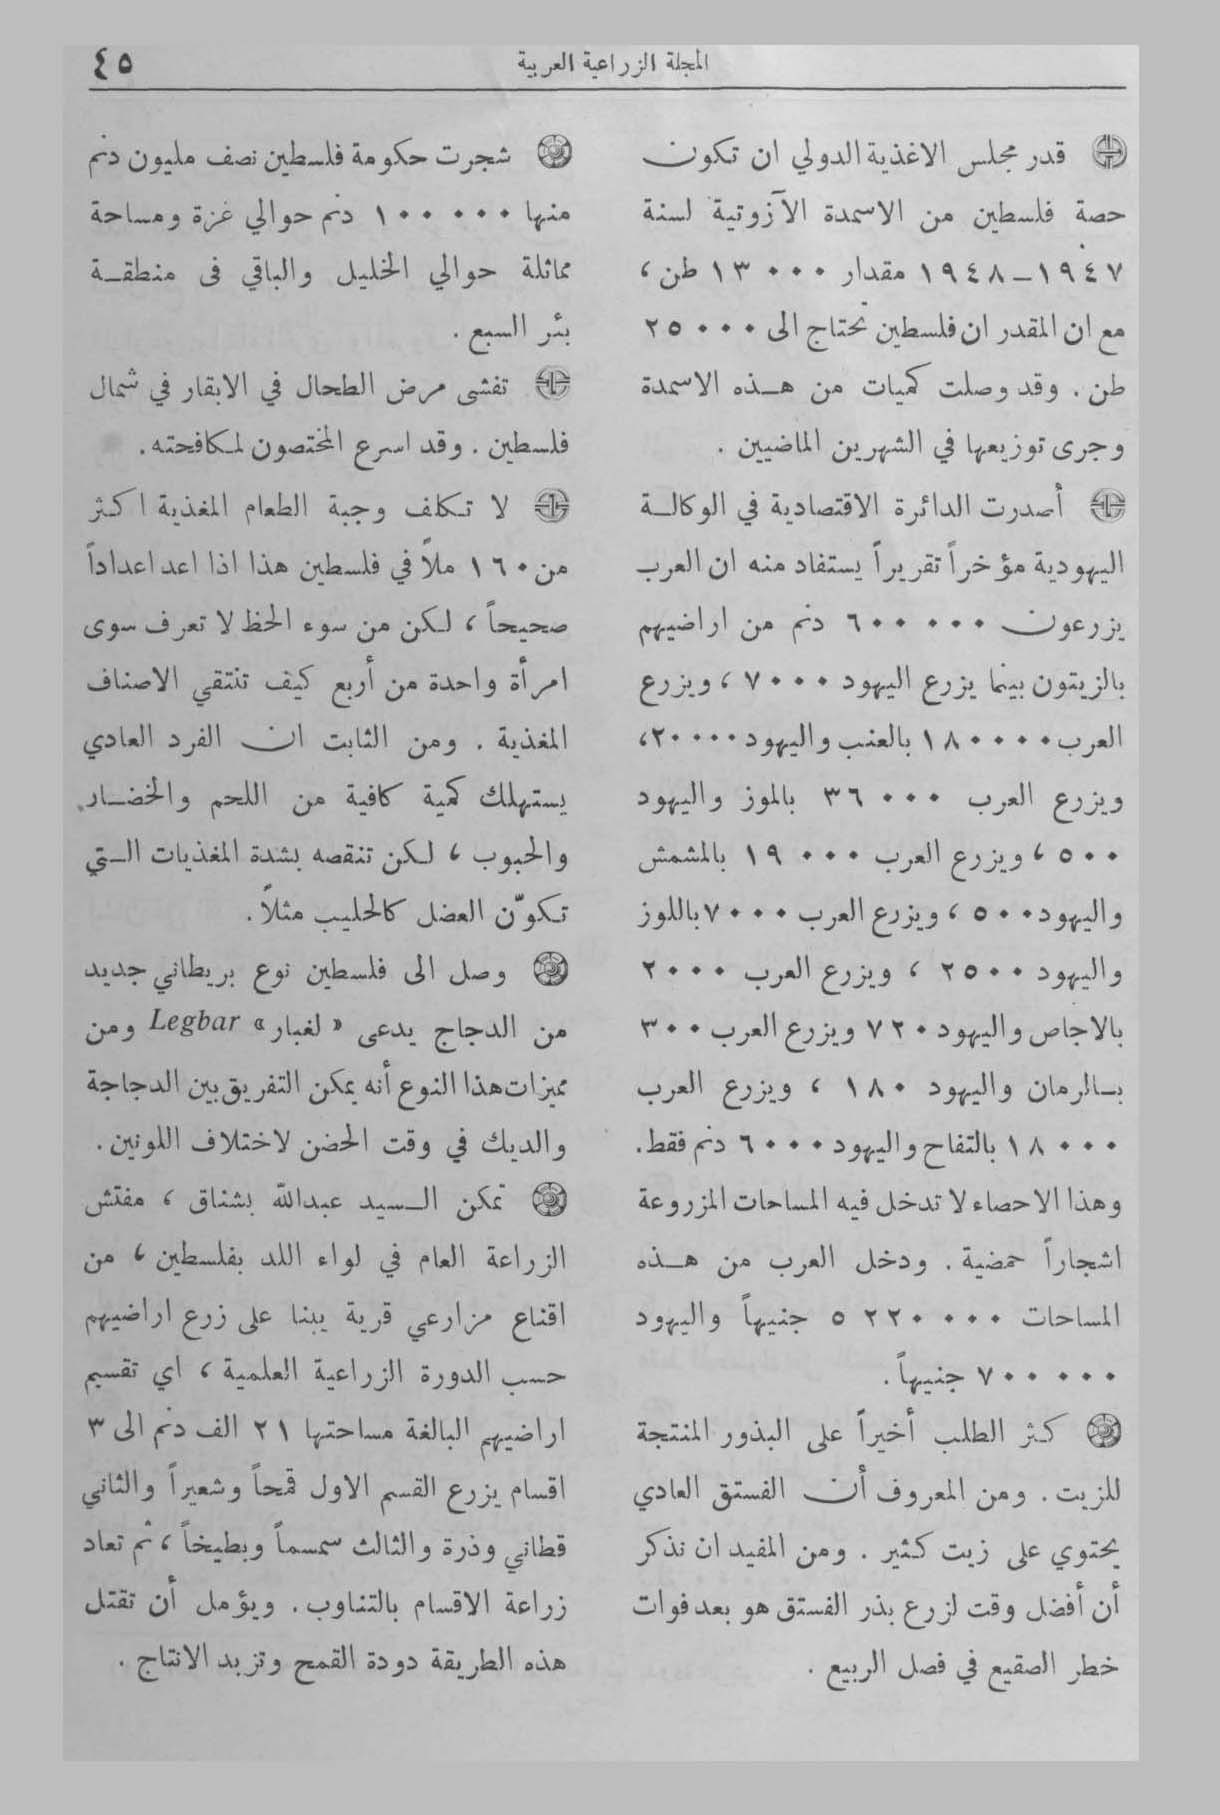 المجلة الزراعية العربية
٤٥
قدر مجلس الاغذية الدولي ان تكون
حصة فلسطين من الاسمدة الآزوتية لسنة
١٩٤٧–١٩٤٨ مقدار ١٣٠٠٠ طن ،
مع ان المقدر ان فلسطين تحتاج الى ٢٥٠٠٠
طن . وقد وصلت كميات من هـذه الاسمدة
وجرى توزيعها في الشهرين الماضيين .
أصدرت الدائرة الاقتصادية في الوكالـة
اليهودية مؤخراً تقريراً يستفاد منه ان العرب
يزرعون ٦٠٠٠٠٠ دنم من اراضيهم
بالزيتون بينما يزرع اليهود ٧٠٠٠ ، ويزرع
العرب ١٨٠٠٠٠ بالعنب واليهود ٢٠٠٠٠،
ويزرع العرب ٣٦٠٠٠ بالموز واليهود
٥٠٠ ، ويزرع العرب ١٩٠٠٠ بالمشمش
واليهود ٥٠٠ ، ويزرع العرب ٧٠٠٠ باللوز
واليهود ٢٥٠٠ ، ويزرع العرب ٢٠٠٠
بالاجاص واليهود ٧٢٠ ويزرع العرب ٣٠٠
بـالرمان واليهود ١٨٠ ، ويزرع العرب
١٨٠٠٠ بالتفاح واليهود ٦٠٠٠ دنم فقط.
وهذا الاحصاء لا تدخل فيه المساحات المزروعة
اشجاراً حمضية . ودخل العرب من هـذه
المساحات ٥٢٢٠٠٠٠ جنيهاً واليهود
٧٠٠٠٠٠ جنيهاً .
كـثر الطلب أخيراً على البذور المنتجة
للزيت . ومن المعروف أن الفستق العادي
يحتوي على زيت كثير . ومن المفيد ان نذكر
أن أفضل وقت لزرع بذر الفستق هو بعد فوات
خطر الصقيع في فصل الربيع .
شجرت حكومة فلسطين نصف مليون دنم
منها ١٠٠٠٠٠ دنم حوالي غزة ومساحة
مماثلة حوالي الخليل والباقي فى منطقـة
بئر السبع .
تفشى مرض الطحال في الابقار في شمال
فلسطين . وقد اسرع المختصون لمكافحته .
لا تكلف وجبة الطعام المغذية اكـثر
من ١٦٠ ملاً في فلسطين هذا اذا اعد اعداداً
صحيحاً ، لكن من سوء الحظ لا تعرف سوى
امرأة واحدة من أربع كيف تنتقي الاصناف
المغذية . ومن الثابت ان الفرد العادي
يستهلك كمية كافية من اللحم والخضـار
والحبوب ، لكن تنقصه بشدة المغذيات الـتي
تكوّن العضل كالحليب مثلاً .
وصل الى فلسطين نوع بريطاني جديد
من الدجاج يدعى « لغبار » Legbar ومن
مميزات هذا النوع أنه يمكن التفريق بين الدجاجة
والديك في وقت الحضن لاختلاف اللونين .
تمكن الـسيد عبدالله بشناق ، مفتش
الزراعة العام في لواء اللد بفلسطين ، من
اقناع مزارعي قرية يبنا على زرع اراضيهم
حسب الدورة الزراعية العلمية ، اي تقسيم
اراضيهم البالغة مساحتها ٢١ الف دنم الى ٣
اقسام يزرع القسم الاول قمحاً وشعيراً والثاني
قطاني وذرة والثالث سمسماً وبطيخاً ، ثم تعاد
زراعة الاقسام بالتناوب . ويؤمل أن تقتل
هذه الطريقة دودة القمح وتزيد الانتاج .